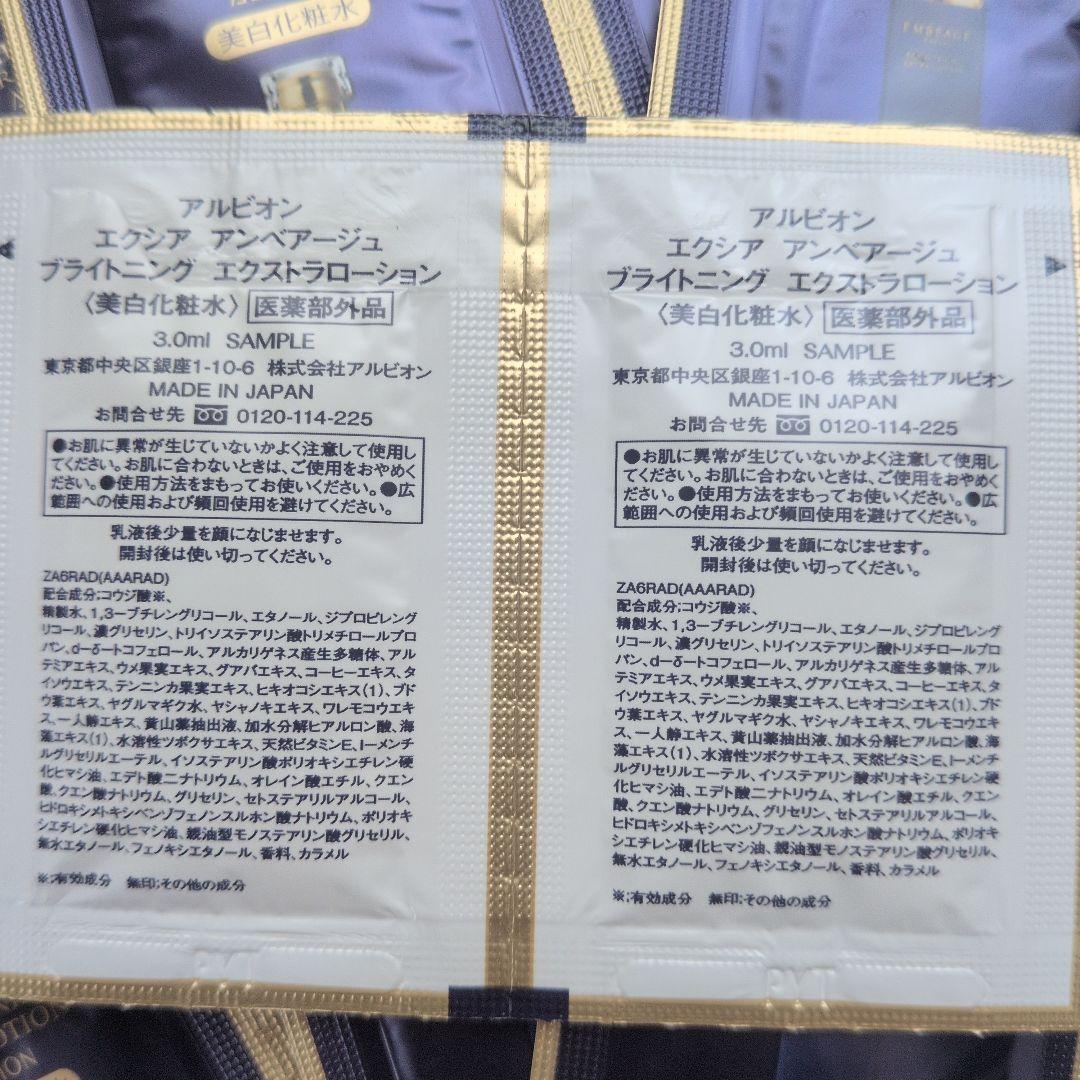 美白化粧水
EMBEAGE
アルビオン
エクシア アンベアージュ
ブライトニング エクストラローション
〈美白化粧水〉 医薬部外品
3.0ml SAMPLE
東京都中央区銀座1-10-6 株式会社アルビオン
MADE IN JAPAN
お問合せ先 0120-114-225
●お肌に異常が生じていないかよく注意して使用し
てください。お肌に合わないときは、ご使用をおやめく
ださい。●使用方法をまもってお使いください。●広
範囲への使用および頻回使用を避けてください。
乳液後少量を顔になじませます。
開封後は使い切ってください。
ZA6RAD(AAARAD)
配合成分;コウジ酸※、
精製水、1,3ーブチレングリコール、エタノール、ジプロピレング
リコール、濃グリセリン、トリイソステアリン酸トリメチロールプロ
パン、dーδートコフェロール、アルカリゲネス産生多糖体、アル
テミアエキス、ウメ果実エキス、グアバエキス、コーヒーエキス、タ
イソウエキス、テンニンカ果実エキス、ヒキオコシエキス(1)、ブド
ウ葉エキス、ヤグルマギク水、ヤシャノキエキス、ワレモコウエキ
ス、一人静エキス、黄山薬抽出液、加水分解ヒアルロン酸、海
藻エキス(1)、水溶性ツボクサエキス、天然ビタミンE、lーメンチ
ルグリセリルエーテル、イソステアリン酸ポリオキシエチレン硬
化ヒマシ油、エデト酸二ナトリウム、オレイン酸エチル、クエン
酸、クエン酸ナトリウム、グリセリン、セトステアリルアルコール、
ヒドロキシメトキシベンゾフェノンスルホン酸ナトリウム、ポリオキ
シエチレン硬化ヒマシ油、親油型モノステアリン酸グリセリル、
無水エタノール、フェノキシエタノール、香料、カラメル
※;有効成分 無印;その他の成分
アルビオン
エクシア アンベアージュ
ブライトニング エクストラローション
〈美白化粧水〉 医薬部外品
3.0ml SAMPLE
東京都中央区銀座1-10-6 株式会社アルビオン
MADE IN JAPAN
お問合せ先 0120-114-225
●お肌に異常が生じていないかよく注意して使用し
てください。お肌に合わないときは、ご使用をおやめく
ださい。●使用方法をまもってお使いください。●広
範囲への使用および頻回使用を避けてください。
乳液後少量を顔になじませます。
開封後は使い切ってください。
ZA6RAD(AAARAD)
配合成分;コウジ酸※、
精製水、1,3ーブチレングリコール、エタノール、ジプロピレング
リコール、濃グリセリン、トリイソステアリン酸トリメチロールプロ
パン、dーδートコフェロール、アルカリゲネス産生多糖体、アル
テミアエキス、ウメ果実エキス、グアバエキス、コーヒーエキス、タ
イソウエキス、テンニンカ果実エキス、ヒキオコシエキス(1)、ブド
ウ葉エキス、ヤグルマギク水、ヤシャノキエキス、ワレモコウエキ
ス、一人静エキス、黄山薬抽出液、加水分解ヒアルロン酸、海
藻エキス(1)、水溶性ツボクサエキス、天然ビタミンE、lーメンチ
ルグリセリルエーテル、イソステアリン酸ポリオキシエチレン硬
化ヒマシ油、エデト酸二ナトリウム、オレイン酸エチル、クエン
酸、クエン酸ナトリウム、グリセリン、セトステアリルアルコール、
ヒドロキシメトキシベンゾフェノンスルホン酸ナトリウム、ポリオキ
シエチレン硬化ヒマシ油、親油型モノステアリン酸グリセリル、
無水エタノール、フェノキシエタノール、香料、カラメル
※;有効成分 無印;その他の成分